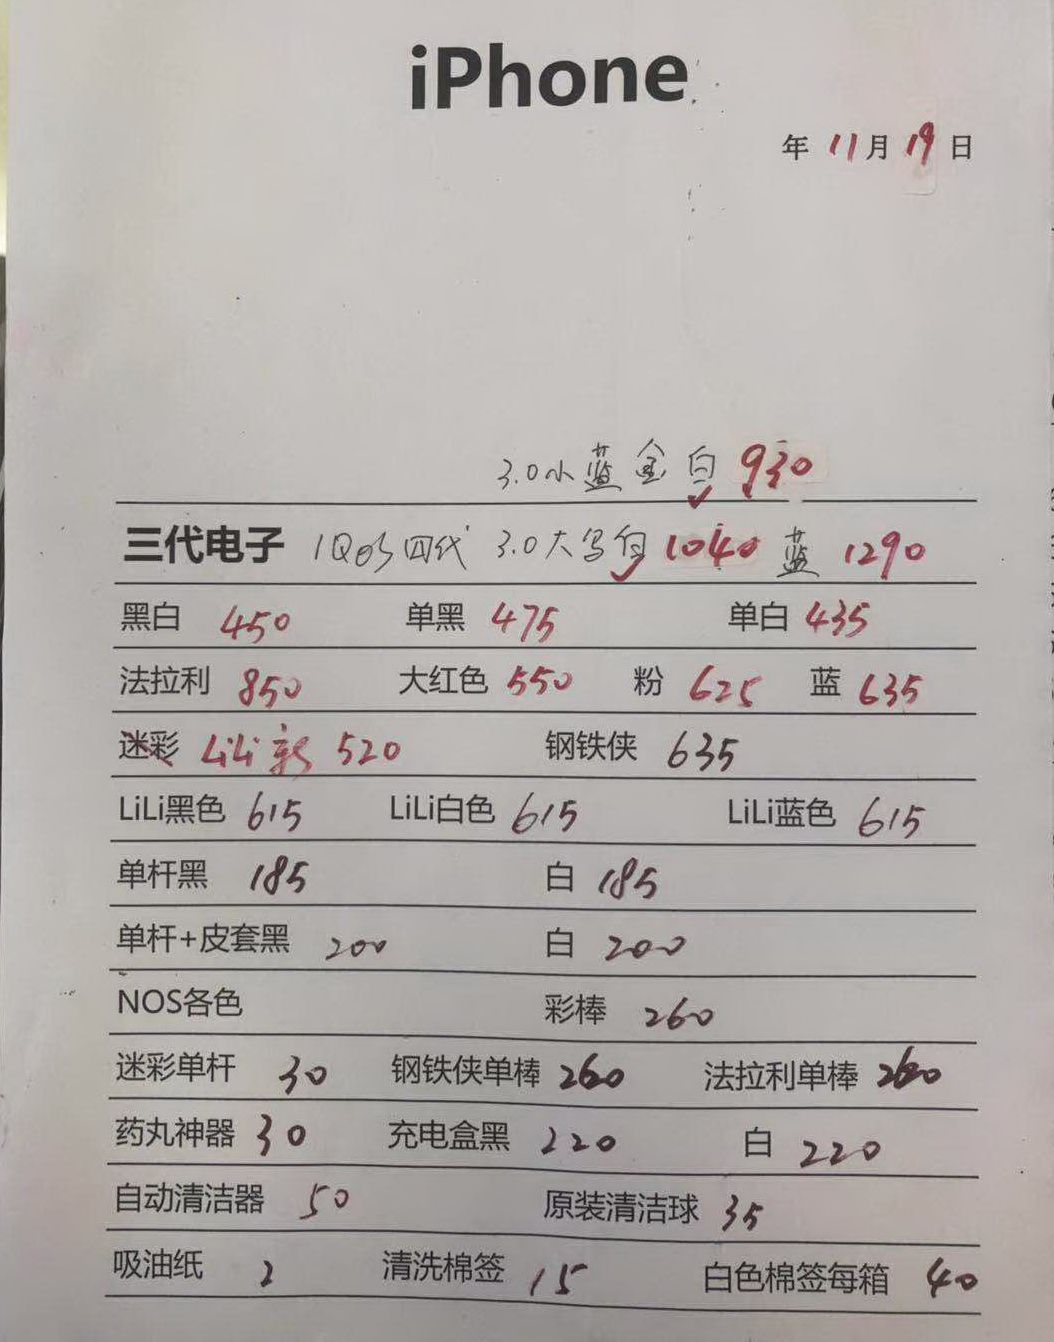 iPhone
年 11月 19日
3.0小蓝金白 930
三代电子 IQOS四代 3.0大 白 1040 蓝 1290
黑白 450 单黑 475 单白 435
法拉利 850 大红色 550 粉 625 蓝 635
迷彩 LiLi新 520 钢铁侠 635
LiLi黑色 615 LiLi白色 615 LiLi蓝色 615
单杆黑 185 白 185
单杆+皮套黑 200 白 200
NOS各色 彩棒 260
迷彩单杆 30 钢铁侠单棒 260 法拉利单棒 260
药丸神器 30 充电盒黑 220 白 220
自动清洁器 50 原装清洁球 35
吸油纸 2 清洗棉签 15 白色棉签每箱 40